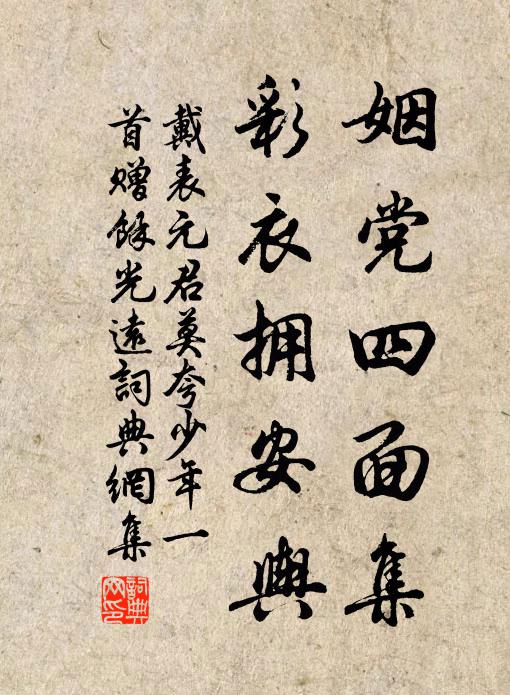 姻党四面集
彩衣拥安舆
戴表元君莫夸少年一
首赠餘光遠詞典網集
詞典网印